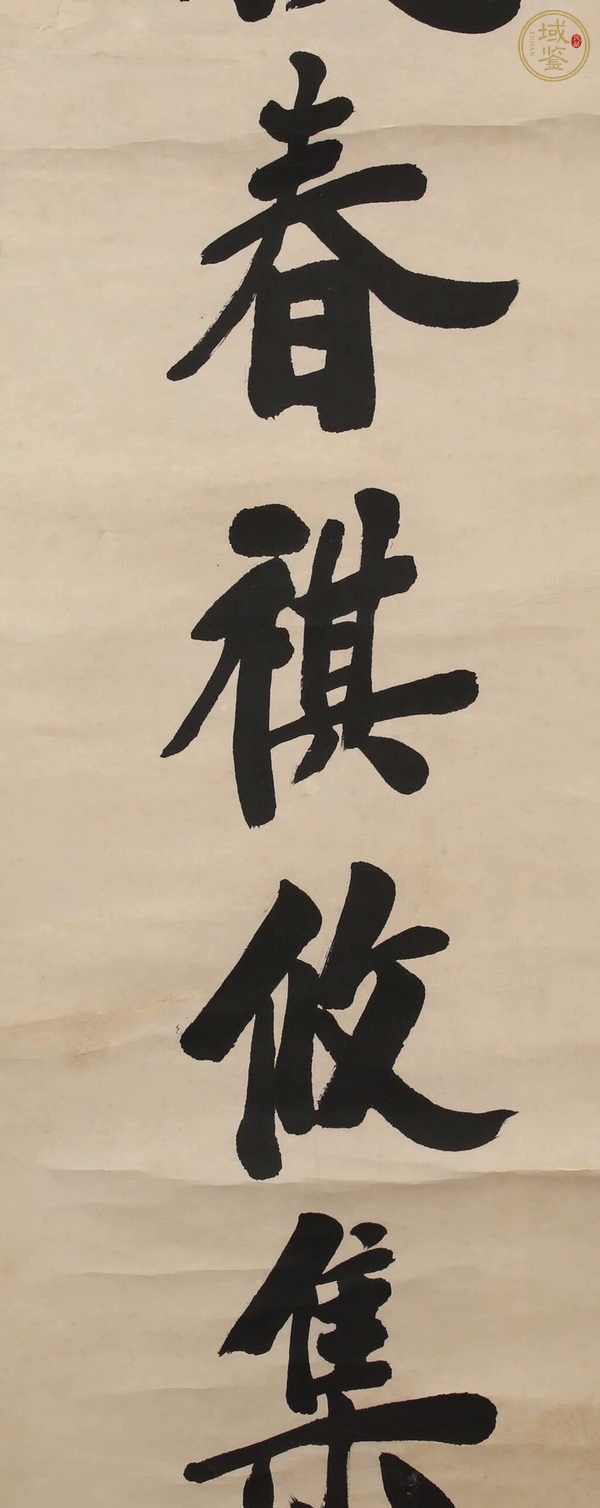 域鉴
YUJIAN
春祺攸集